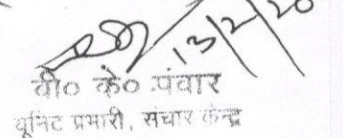 13/2/20
वी० के० पंवार
यूनिट प्रभारी, संचार केन्द्र